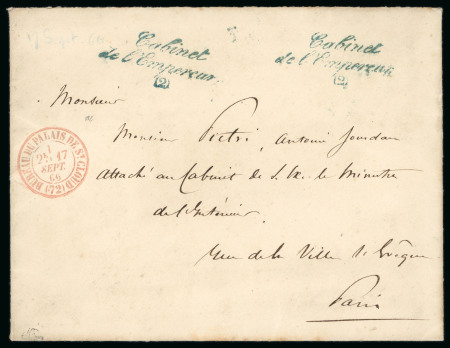 Cabinet
de l'Empereur
(2)
Cabinet
de l'Empereur
(2)
Monsieur
Monsieur Pietri, Antoine Jourdan
Attaché au Cabinet de S. Ex. le Ministre
de l'Intérieur
rue de la Ville l'Evêque
Paris
BUREAU DU PALAIS DE ST CLOUD (72)
1
2E 17
SEPT
66